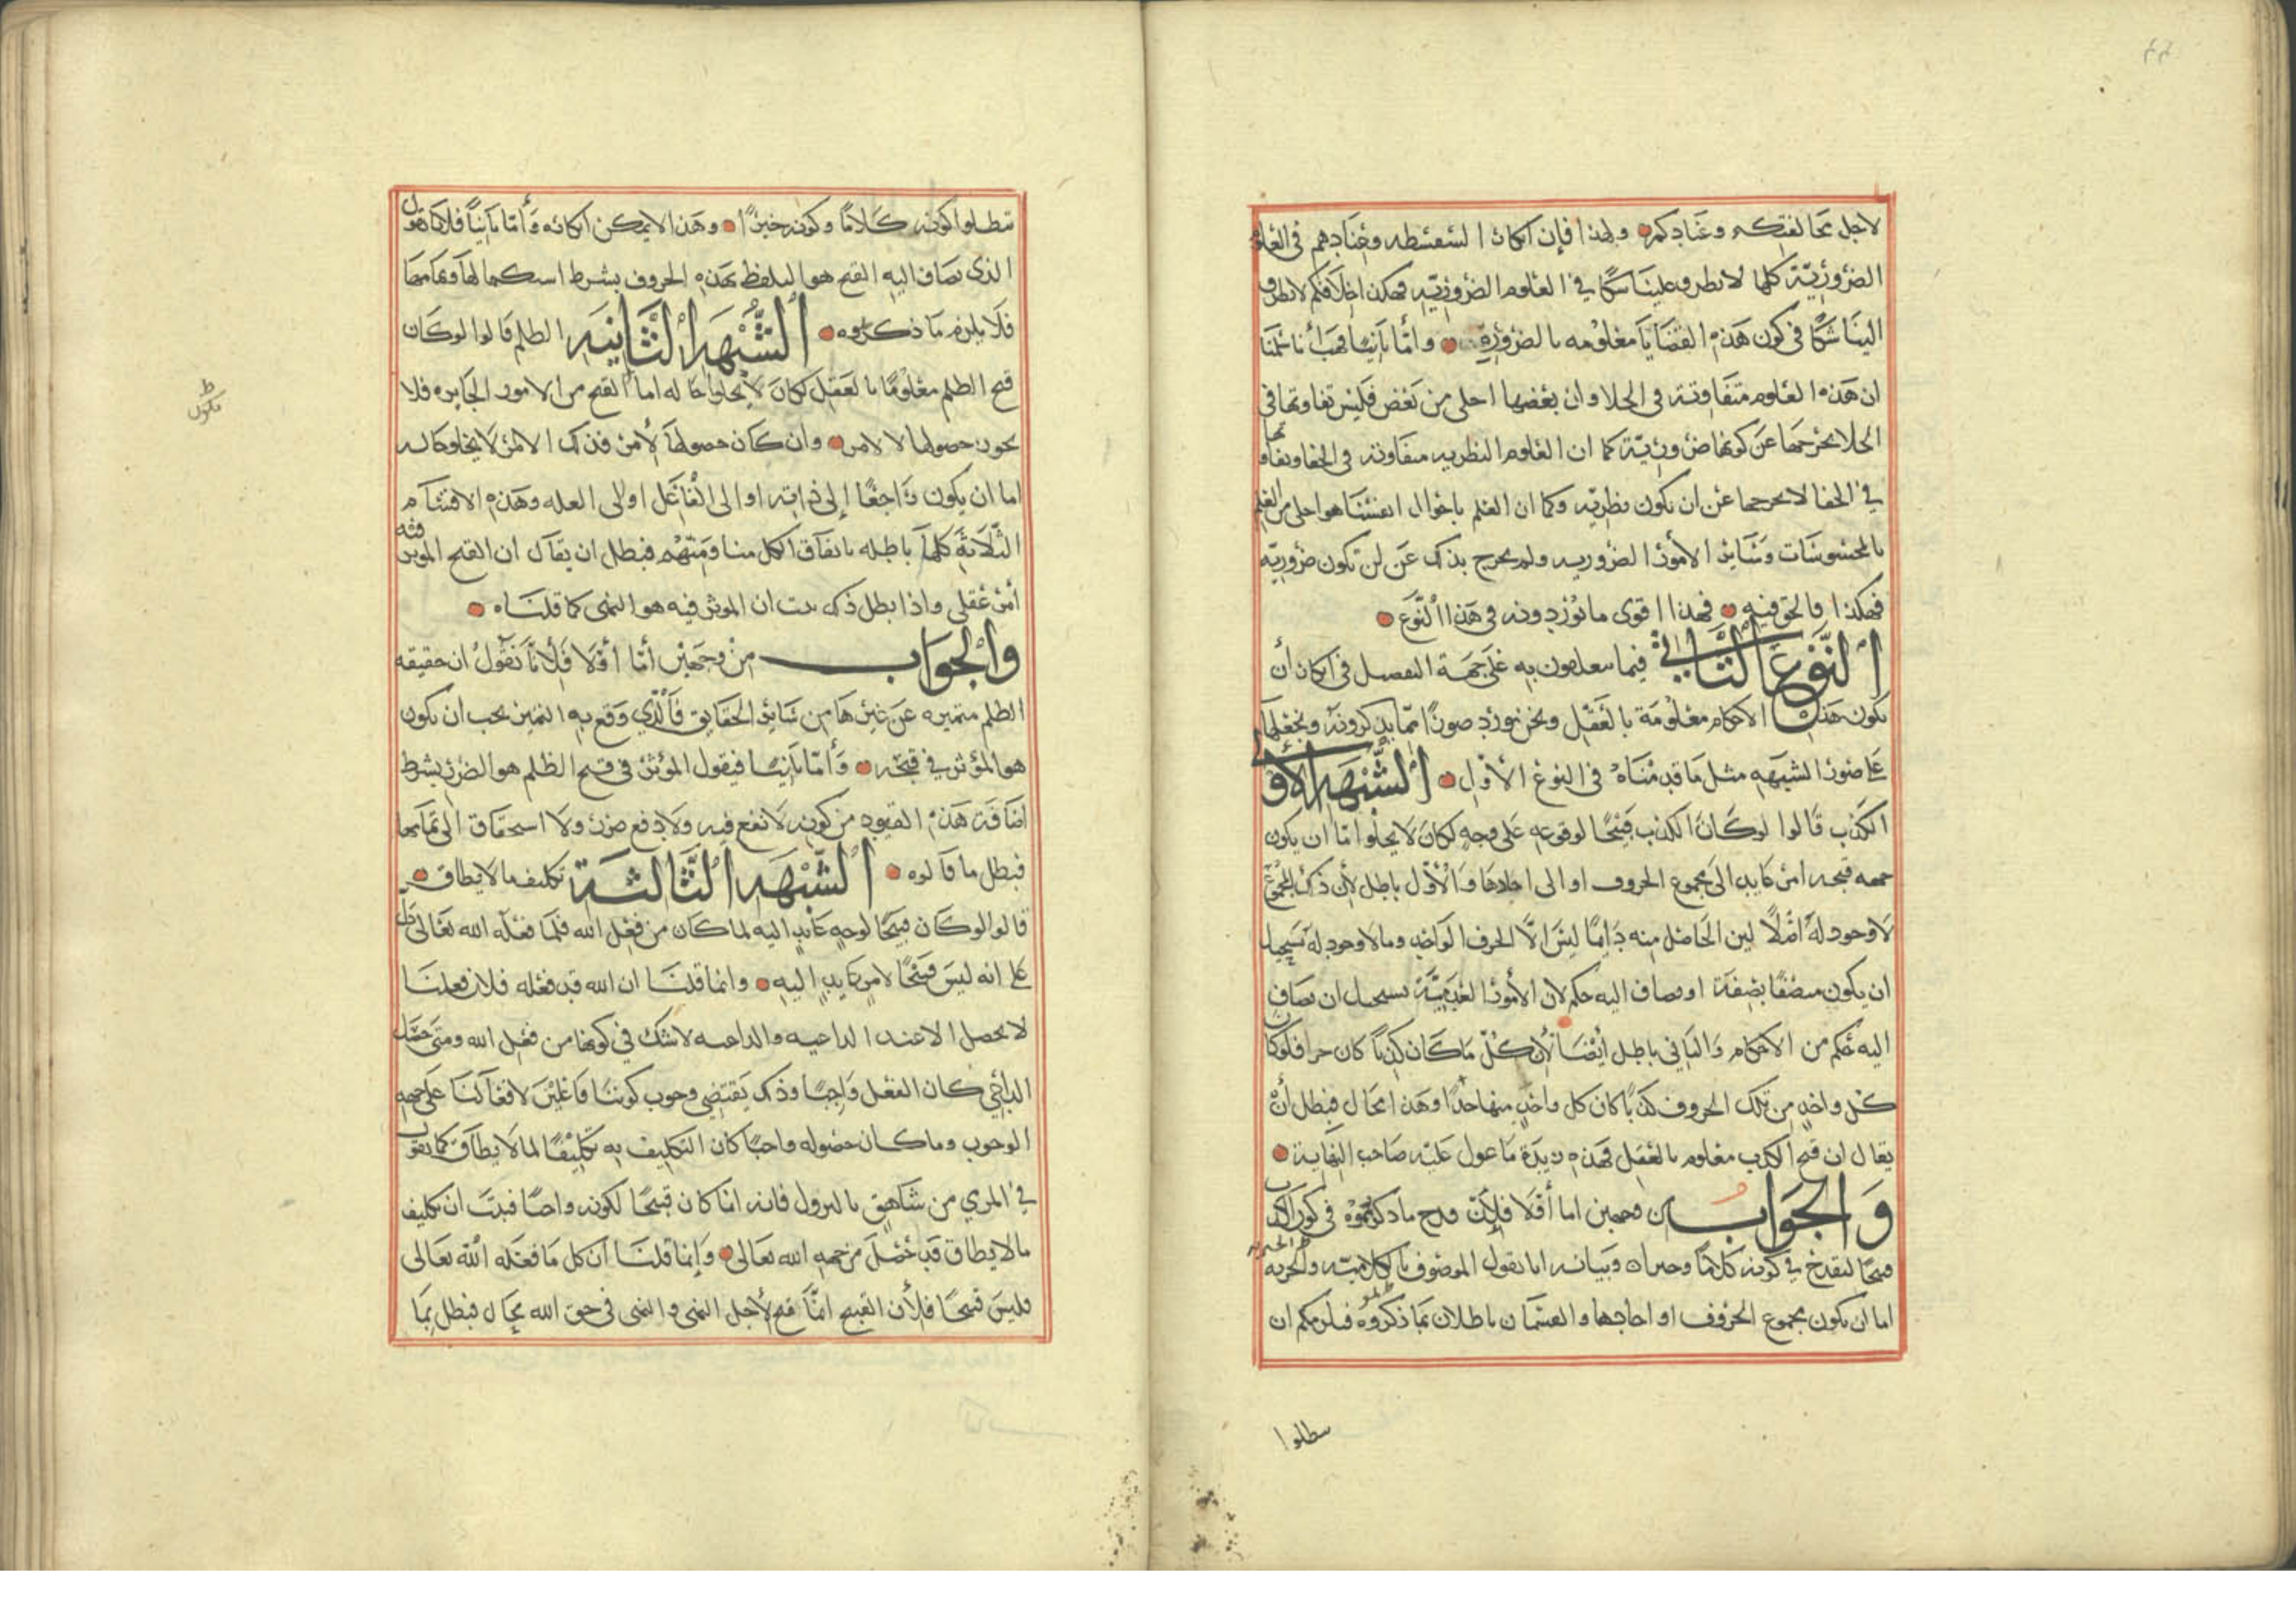 لاجل مخالفتكم وعنادكم ولهذا فإن انكار السفسطه وعنادهم في العلوم
الضرورية كلها لا يطرق علينا شكا في العلوم الضرورية فهكذا خلافكم لا يطرق
الينا شكا في كون هذه القضايا معلومه بالضرورة وأما ثانيا فهب أنا سلمنا
ان هذه العلوم متفاوتة في الجلا وان بعضها اجلى من بعض فليس تفاوتها في
الجلا يخرجها عن كونها ضرورية كما ان العلوم النظريه متفاوته في الخفا وتفاوتها
في الخفا لا يخرجها عن ان يكون نظريه وكما ان العلم باحوال انفسنا هو اجلى من العلم
بالمحسوسات وسائر الأمور الضروريه ولم يخرج بذلك عن ان تكون ضرورية
فهكذا فالحق فيه فهذا اقوى ما يوردونه في هذا النوع
النوع الثاني فيما يتعلقون به على جهة التفصيل في انكار أن
يكون هذه الاحكام معلومة بالعقل ونحن نورد صورا مما يذكرونه ونجعلها
على صورة الشبهه مثل ما قدمناه في النوع الأول الشبهة الأولى
الكذب قالوا لو كان الكذب قبيحا لوقوعه على وجه لكان لا يخلوا اما ان يكون
جهه قبحه امر عايد الى مجموع الحروف او الى احادها والأول باطل لأن ذلك المجموع
لا وجود له اصلا لان الحاصل منه دايما ليس الا الحرف الواحد وما لا وجود له يستحيل
ان يكون متصفا بصفة او يضاف اليه حكم لان الأمور العدمية يستحيل ان يضاف
اليه حكم من الاحكام والثاني باطل أيضا لأن كل ما كان كذبا كان خبرا فلو كان
كل واحد من تلك الحروف كذبا كان كل واحد منها خبرا وهذا محال فبطل أن
يقال ان قبح الكذب معلوم بالعقل فهذه زبدة ما عول عليه صاحب النهاية
والجواب من وجهين اما أولا فلان قدح ما ذكرتموه في كون الكذب
قبيحا ليقدح في كونه كلاما وخبرا وبيانه انا نقول الموصوف بالكلامية والخبرية
اما ان يكون مجموع الحروف او احادها والقسمان باطلان بما ذكروه فيلزمكم ان
سطلوا
تبطلوا كونه كلاما وكونه خبرا وهذا لا يمكن انكاره وأما ثانيا فلانا نقول
الذي يضاف اليه القبح هو التلفظ بهذه الحروف بشرط استكمالها وتمامها
فلا يلزم ما ذكروه الشبهة الثانية الظلم قالوا لو كان
قبح الظلم معلوما بالعقل لكان لا يخلوا حاله اما القبح من الامور الجايزه فلا
يجوز حصولها الا لامر وان كان حصولها لأمر فذلك الامر لا يخلو حاله
اما ان يكون راجعا إلى ذاته او الى الفاعل او الى العله وهذه الاقسام
الثلاثة كلها باطله باتفاق الكل منا ومنهم فبطل ان يقال ان القبح الموثر فيه
أمر عقلي واذا بطل ذلك ثبت ان الموثر فيه هو النهي كما قلناه
والجواب من وجهين أما أولا فلأنا نقول ان حقيقه
الظلم متميزه عن غيرها من سائر الحقايق فالذي وقع به التميز يجب ان يكون
هو المؤثر في قبحه وأما ثانيا فيقول المؤثر في قبح الظلم هو الضرر بشرط
اضافة هذه القيود من كونه لا نفع فيه ولا دفع ضرر ولا استحقاق الى تمامها
فبطل ما قالوه الشبهة الثالثة تكليف ما لا يطاق
قالوا لو كان قبيحا لوجه عايد اليه لما كان من فعل الله فلما فعله الله تعالى دل
على انه ليس قبيحا لامر عايد اليه وانما قلنا ان الله قد فعله فلان فعلنا
لا يحصل الا عند الداعيه والداعيه لا شك في كونها من فعل الله ومتى حصل
الداعي كان الفعل واجبا وذلك يقتضي وجوب كوننا فاعلين لافعالنا على جهه
الوجوب وما كان حصوله واجبا كان التكليف به تكليفا لما لا يطاق كما نقول
في المري من شاهق بالنزول فانه انما كان قبيحا لكونه واجبا فثبت ان تكليف
ما لا يطاق قد حصل من جهه الله تعالى وإنما قلنا ان كل ما فعله الله تعالى
فليس قبيحا فلأن القبيح انما قبح لأجل النهي والنهي في حق الله محال فبطل بما
ظ
يكون